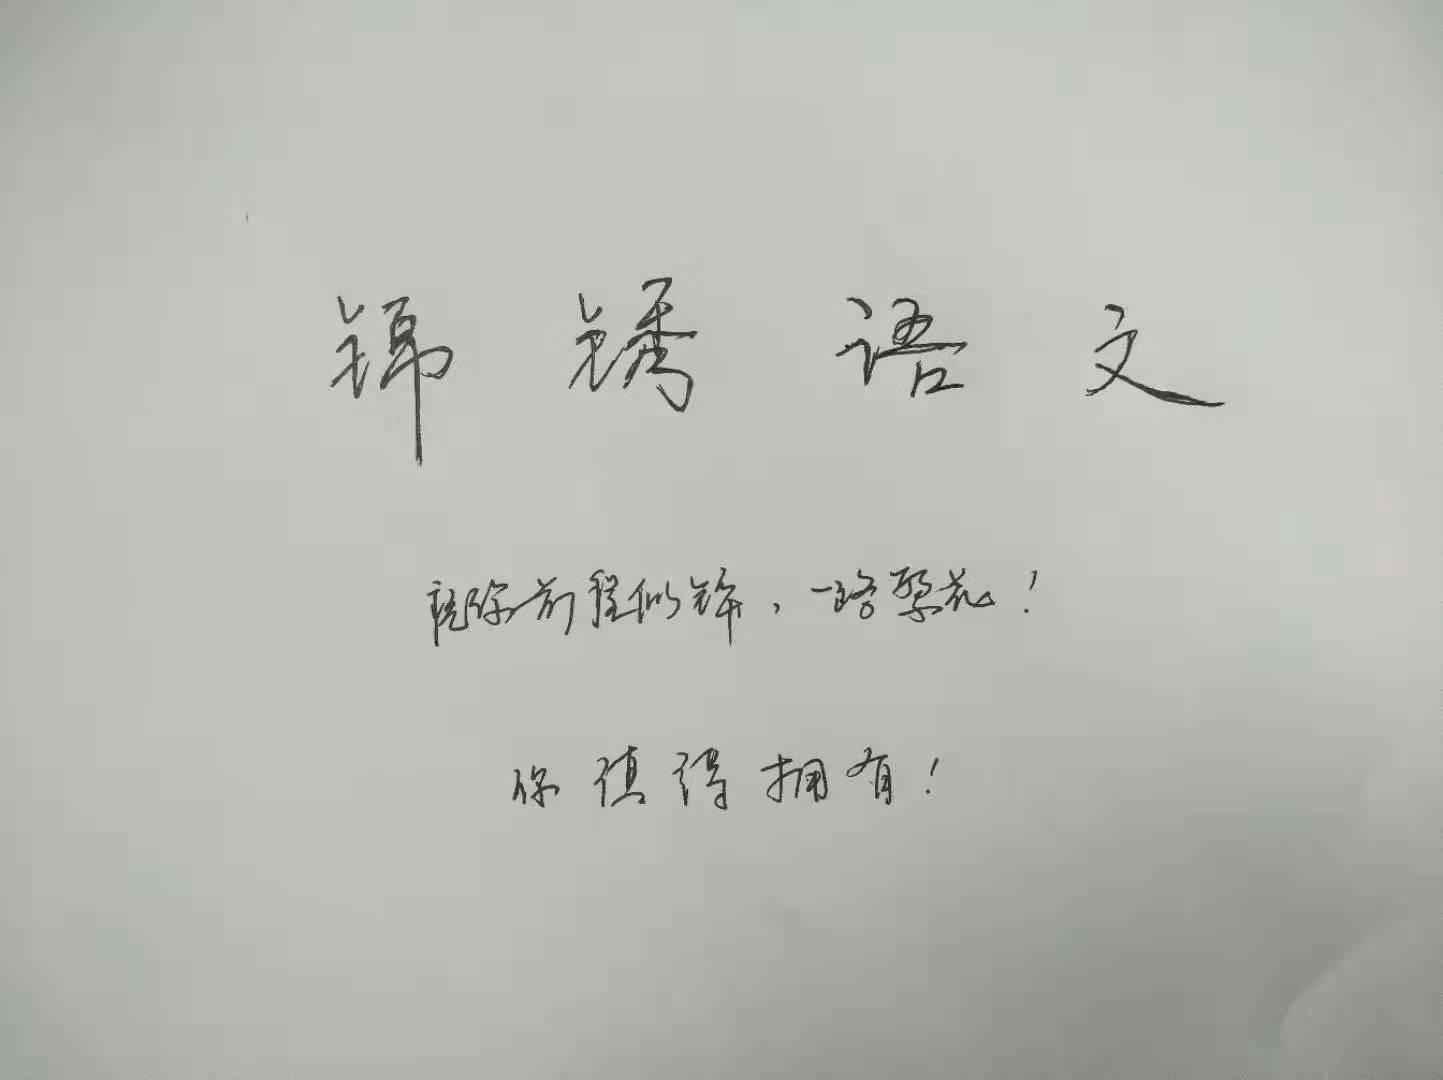 锦锈语文
祝你前程似锦,一路繁花!
你值得拥有!